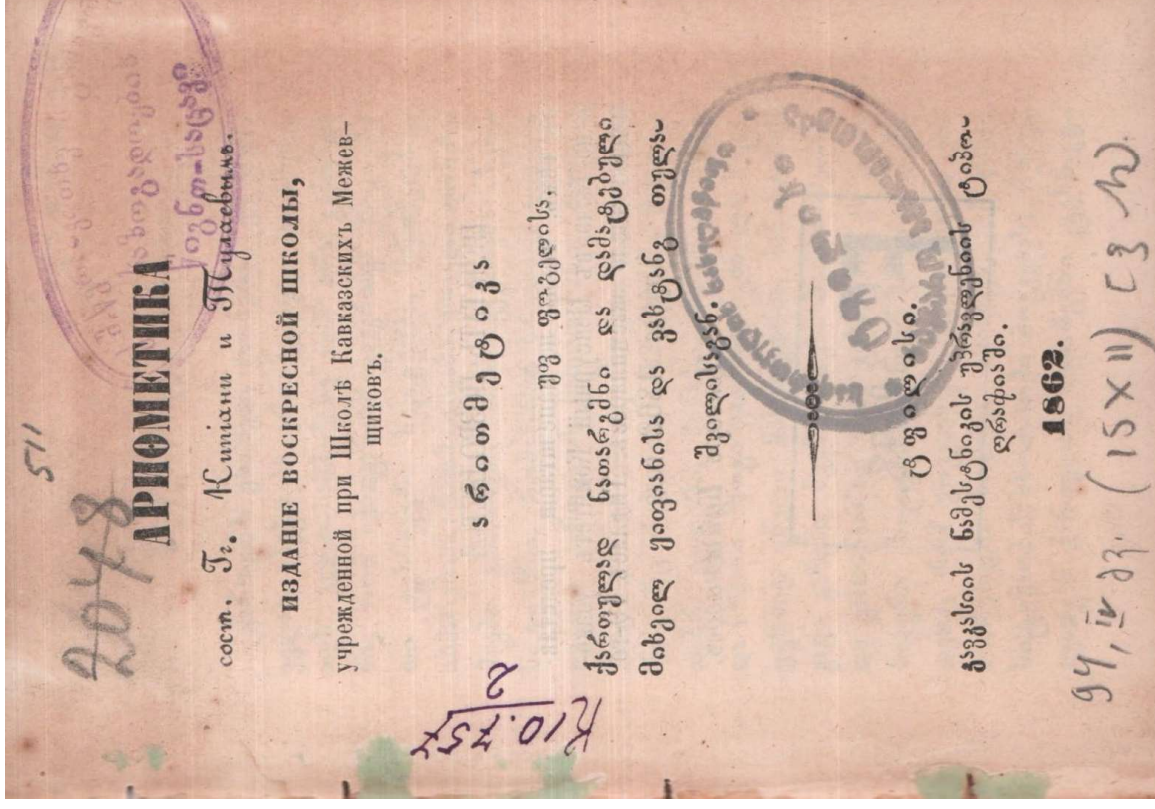 511
2048
АРИѲМЕТИКА
сост. Гг. Кипiани и Тулаевымъ.
ИЗДАНІЕ ВОСКРЕСНОЙ ШКОЛЫ,
учрежденной при Школѣ Кавказскихъ Межев-
щиковъ.
არითმეტიკა
უფ ფოგელისა.
ქართულად ნათარგმნი და დამატებული
მიხეილ ყიფიანისა და ვახტანგ თულა-
შვილისაგან.
ტფილისი.
კავკასიის ნამესტნიკის უპრავლენიის ტიპო-
ღრაფიაში.
1862.
94, IV გვ. (15 X 11) სმ
К10.757
2